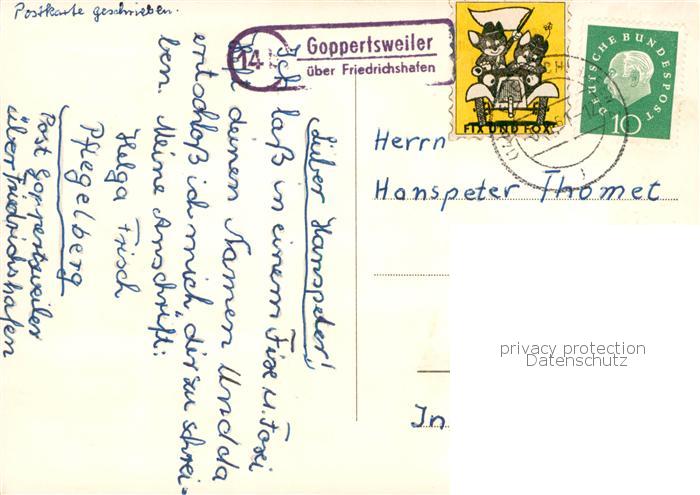 Postkarte geschrieben.
14
Goppertsweiler
über Friedrichshafen
FIX UND FOXI
DEUTSCHE BUNDESPOST
10
Lieber Hanspeter!
Ich laß in einem Fixe u. Foxi
Heft deinen Namen Und da
entschloß ich mich, dir zu schrei-
ben. Meine Anschrift:
Helga Frisch
Pflegelberg
Post Goppertsweiler
über Friedrichshafen
Herrn
Hanspeter Thomet
In
privacy protection
Datenschutz